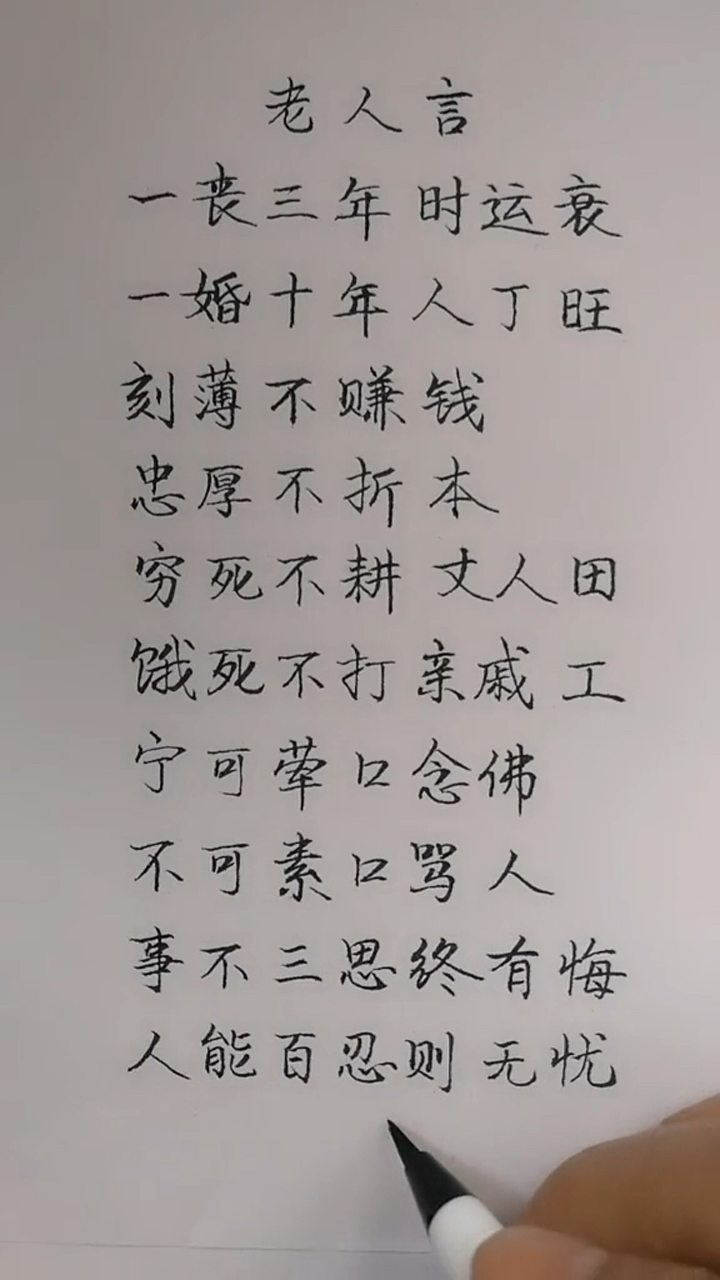 老人言
一丧三年时运衰
一婚十年人丁旺
刻薄不赚钱
忠厚不折本
穷死不耕丈人田
饿死不打亲戚工
宁可荤口念佛
不可素口骂人
事不三思终有悔
人能百忍则无忧